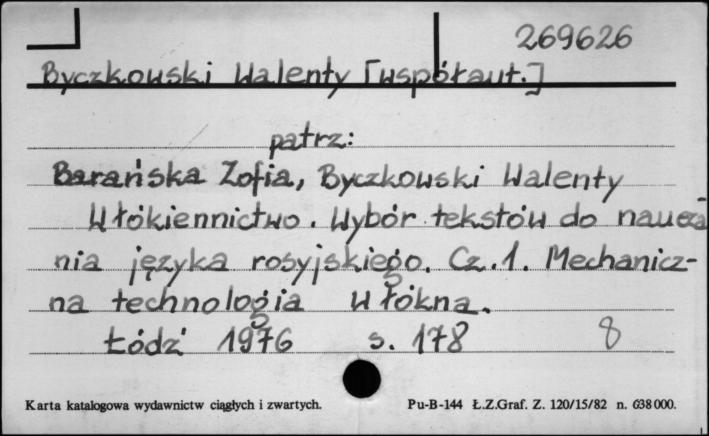 269626
Byczkowski Walenty [współaut.]
patrz:
Barańska Zofia, Byczkowski Walenty
Włókiennictwo. Wybór tekstów do naucza
nia języka rosyjskiego. Cz.1. Mechanicz-
na technologia włókna.
Łódź 1976 s. 178 8
Karta katalogowa wydawnictw ciągłych i zwartych. Pu-B-144 Ł.Z.Graf. Z. 120/15/82 n. 638000.